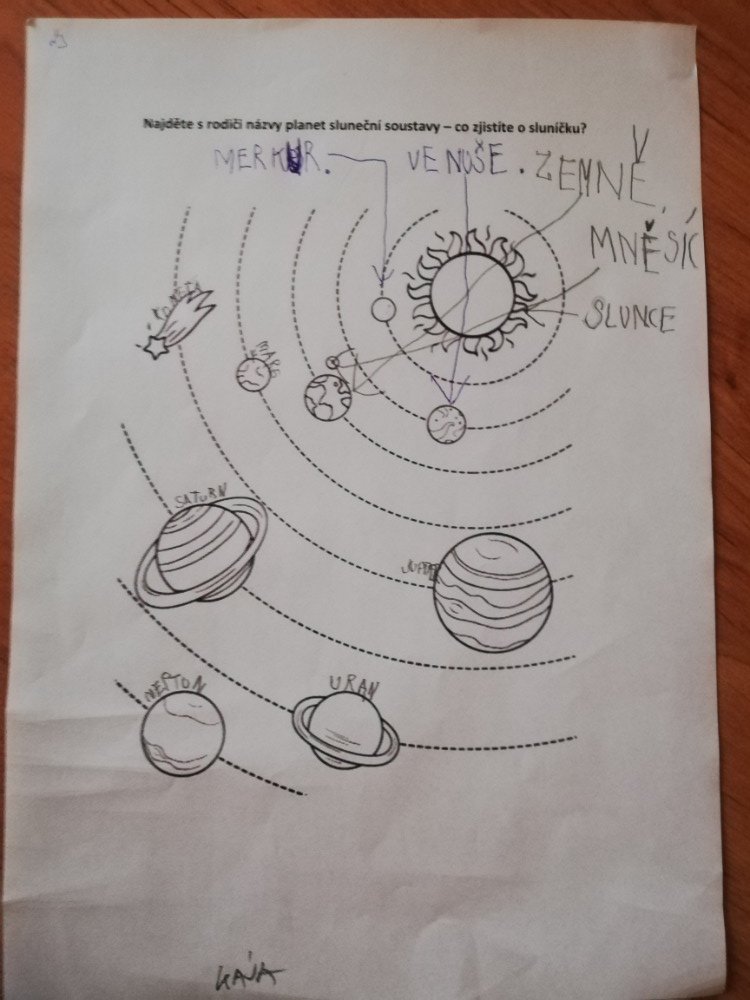 Najděte s rodiči názvy planet sluneční soustavy – co zjistíte o sluníčku?
MERKUR.
VENUŠE.
ZEMNĚ,
MNĚSÍC
SLUNCE
KOMETA
MARS
SATURN
NEPTON
URAN
KÁJA